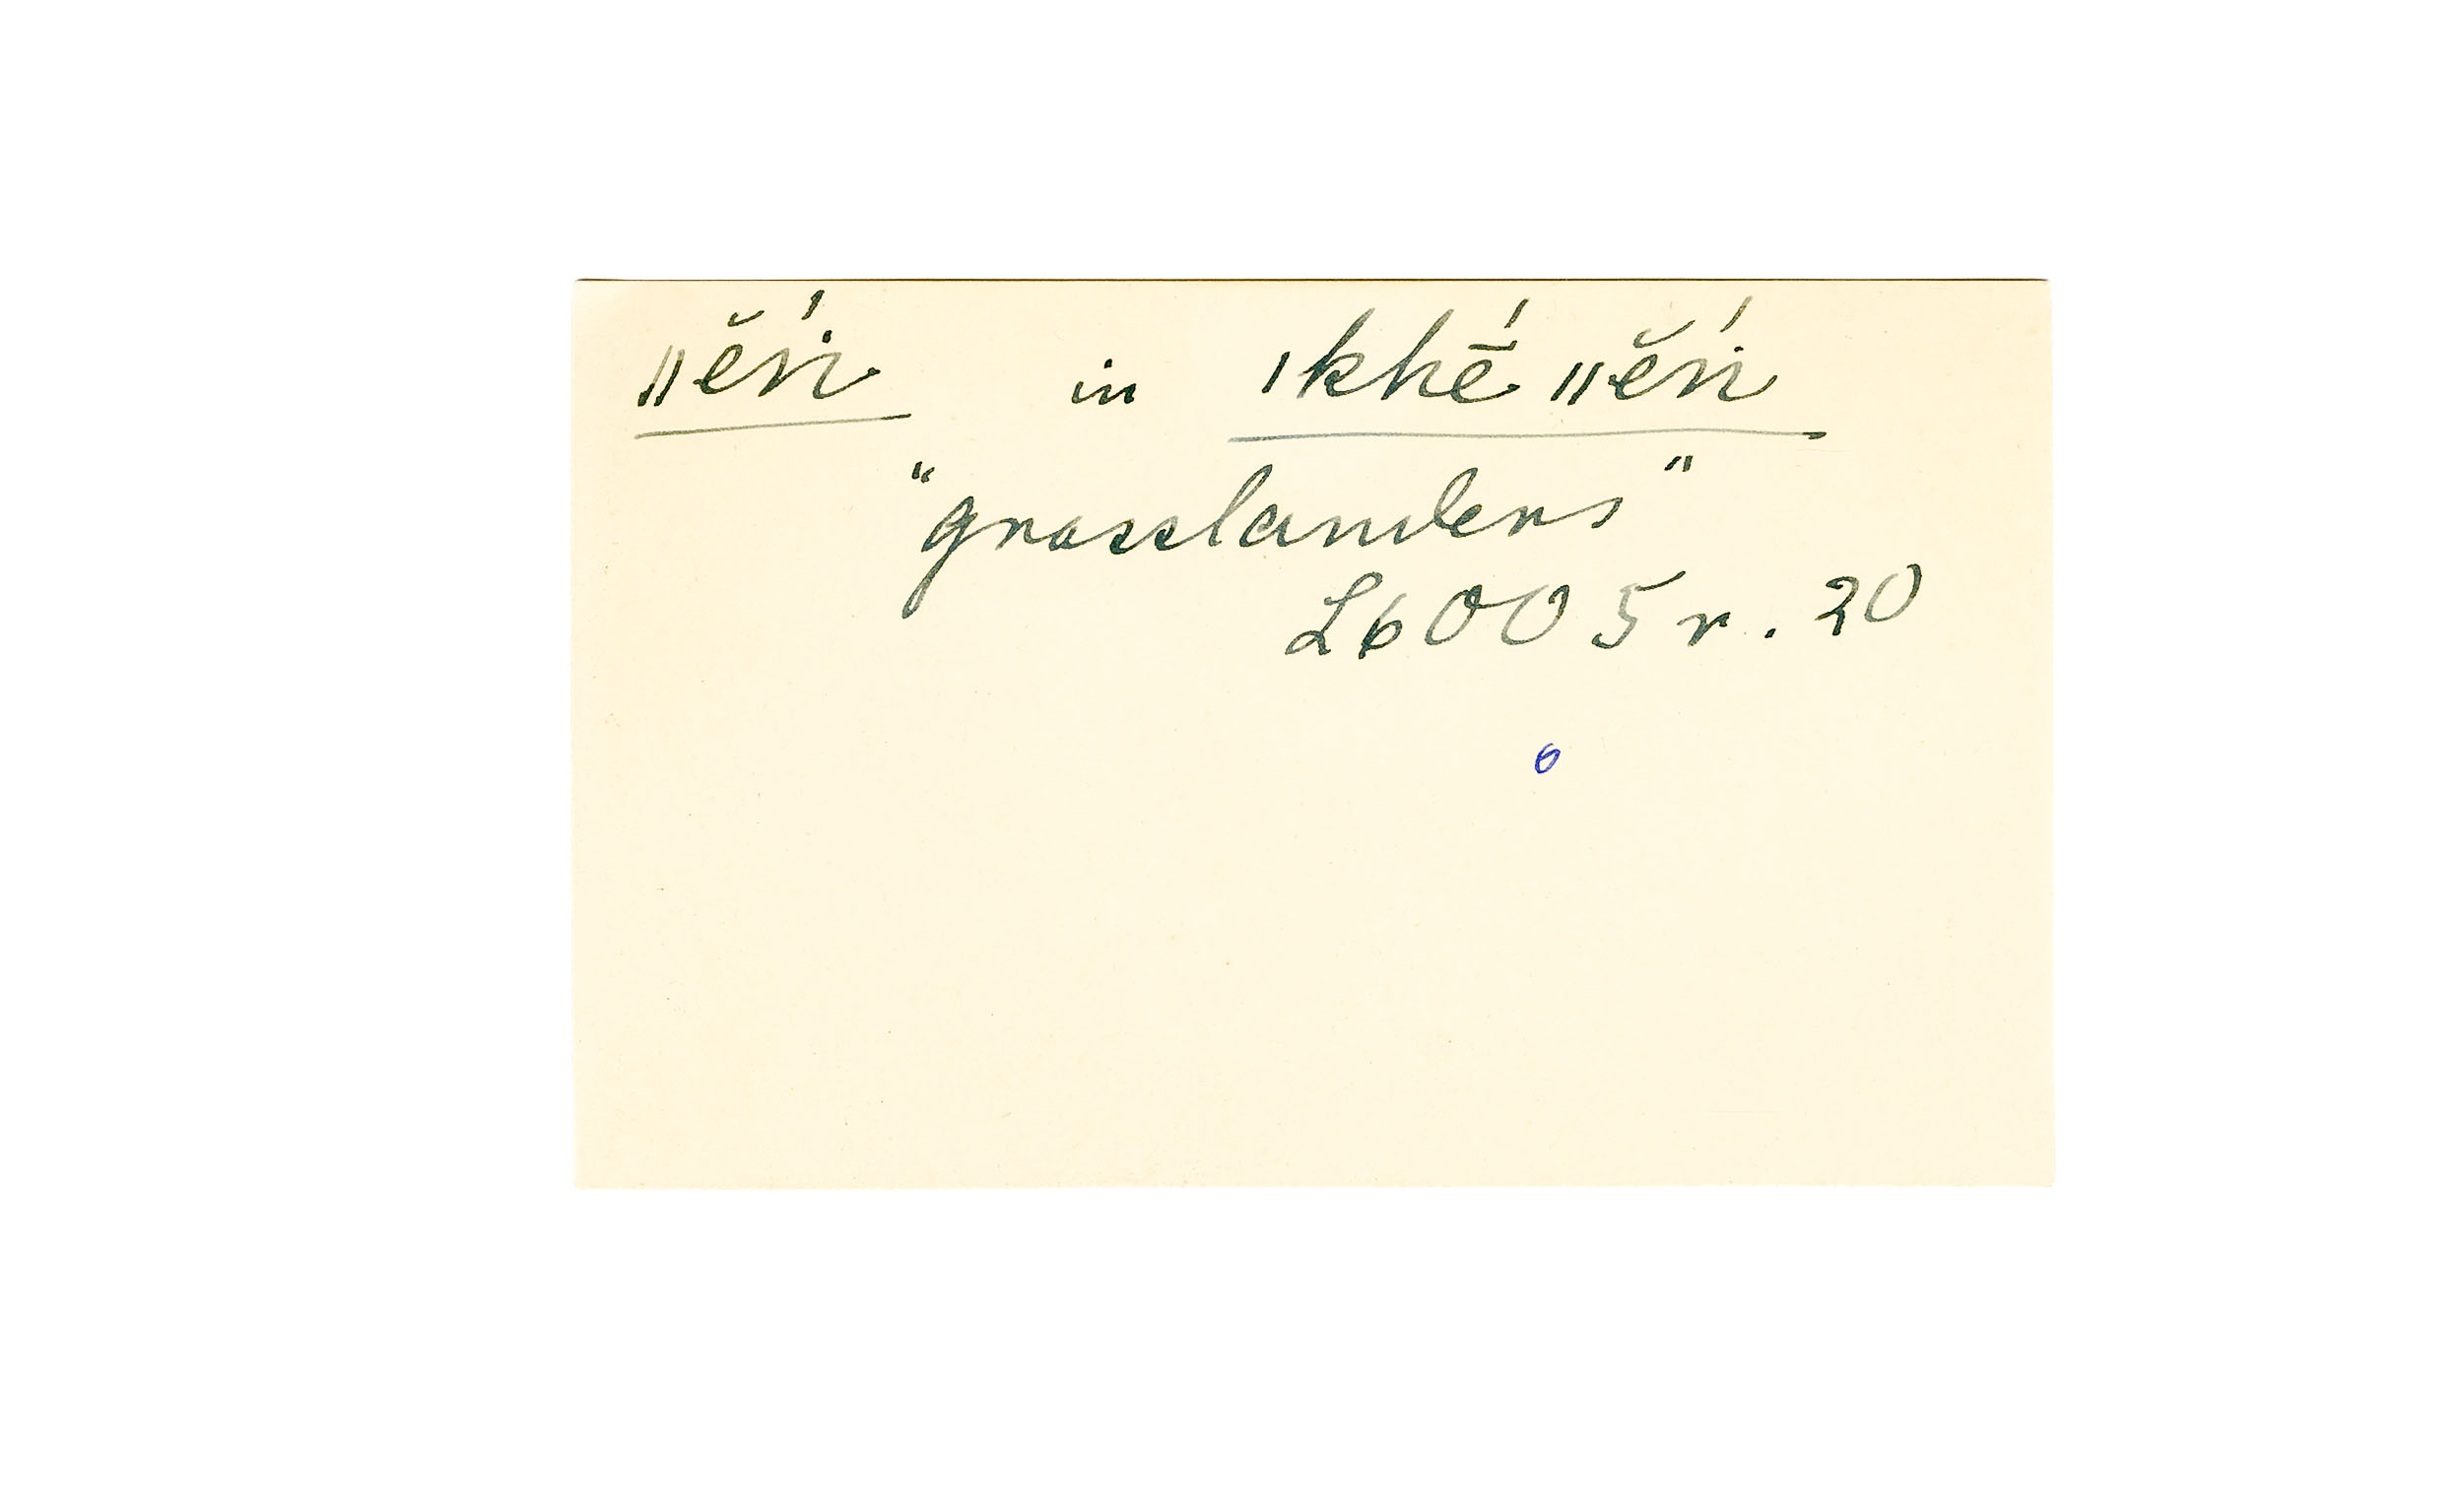 ǁĕń in ǀkhḗ ǁĕń
"grasslanders"
L6005r. 20